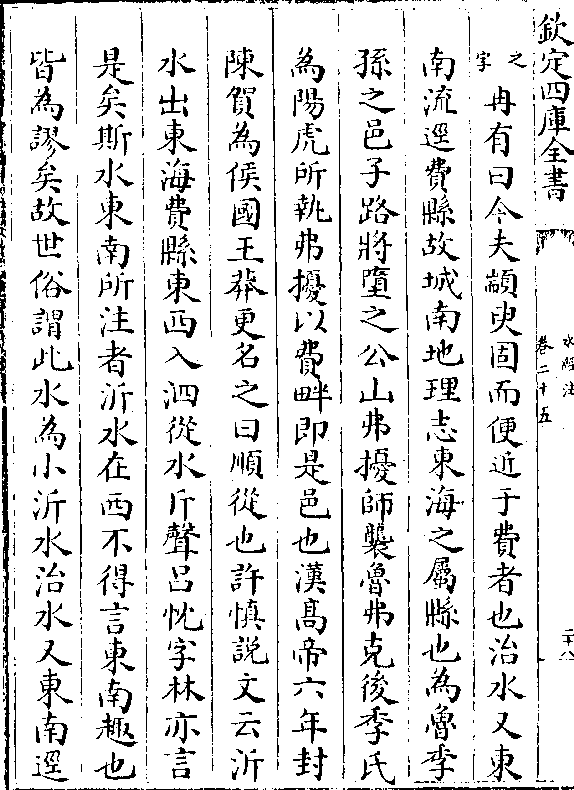 欽定四庫全書
水經注
卷二十五
二十八
之字冉有曰今夫顓臾固而便近于費者也治水又東
南流逕費縣故城南地理志東海之屬縣也為魯季
孫之邑子路將墮之公山弗擾師襲魯弗克後季氏
為陽虎所執弗擾以費畔即是邑也漢高帝六年封
陳賀為侯國王莽更名之曰順從也許慎説文云沂
水出東海費縣東西入泗從水斤聲呂忱字林亦言
是矣斯水東南所注者沂水在西不得言東南趣也
皆為謬矣故世俗謂此水為小沂水治水又東南逕